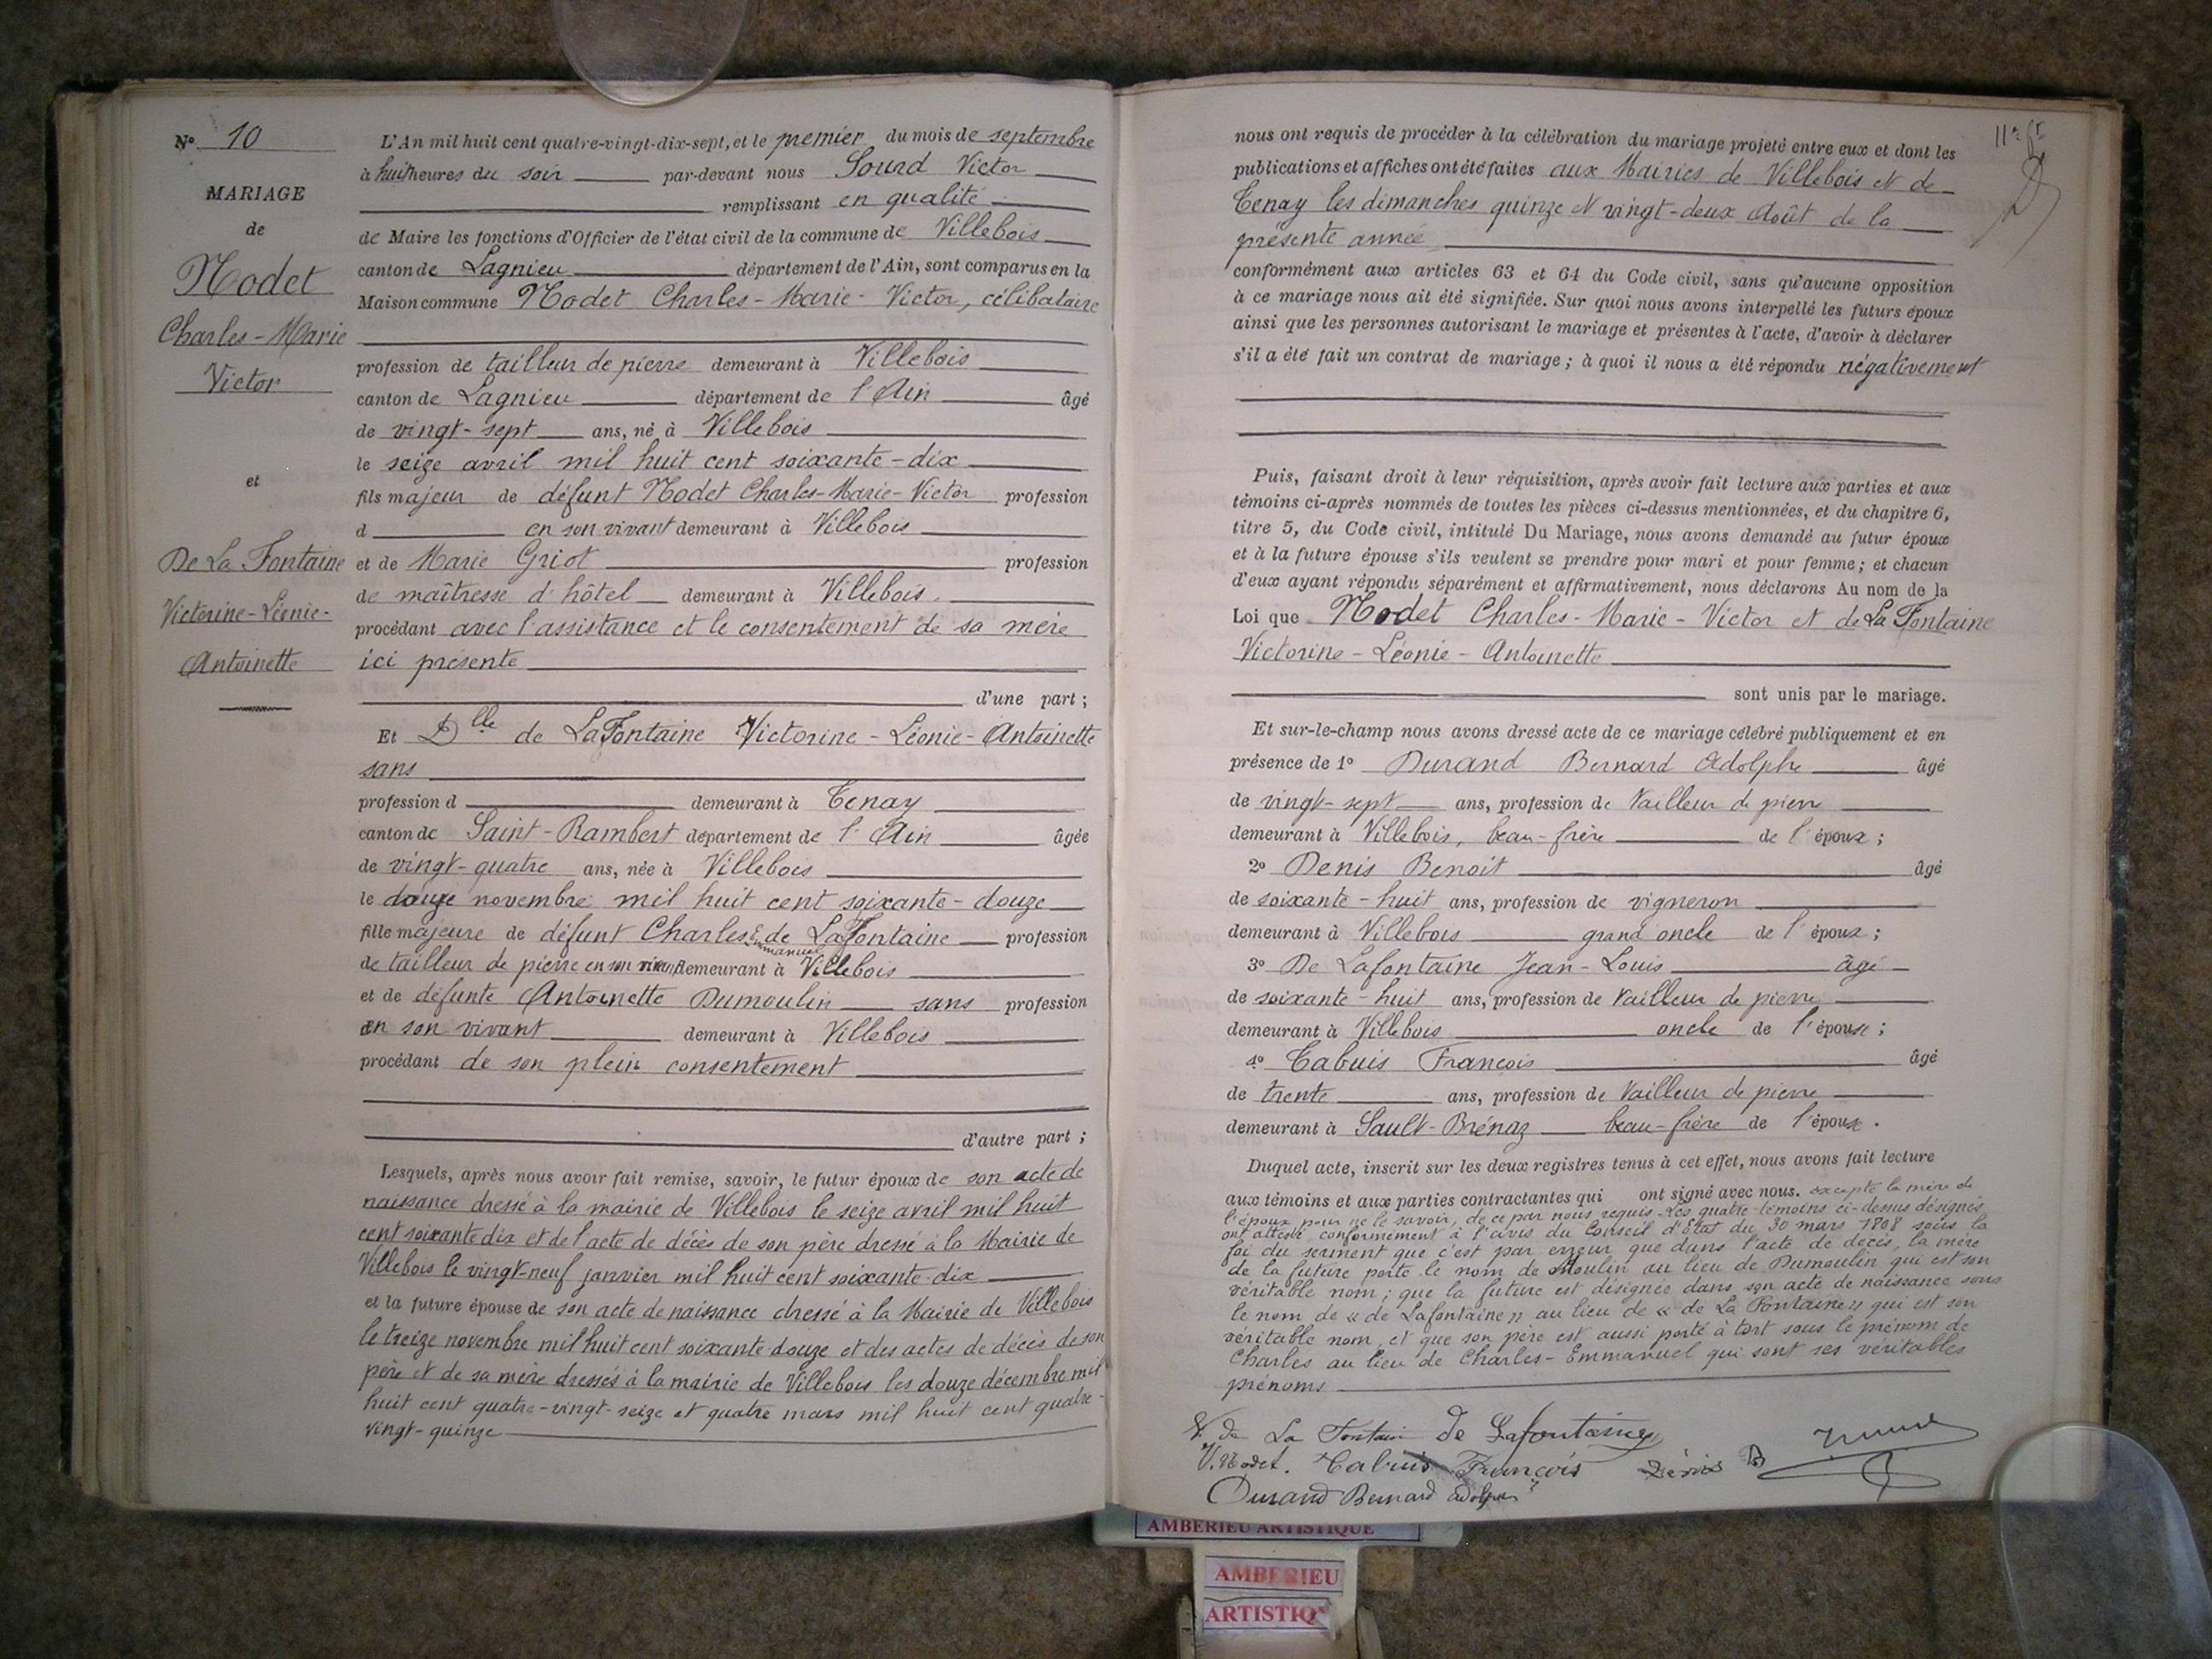 N° 10
MARIAGE
de
Nodet
Charles-Marie
Victor
et
De La Fontaine
Victorine-Léonie-
Antoinette
L'An mil huit cent quatre-vingt-dix-sept, et le premier du mois de septembre
à huit heures du soir par-devant nous Sourd Victor
remplissant en qualité
de Maire les fonctions d'Officier de l'état civil de la commune de Villebois
canton de Lagnieu département de l'Ain, sont comparus en la
Maison commune Nodet Charles-Marie-Victor, célibataire
profession de tailleur de pierre demeurant à Villebois
canton de Lagnieu département de l'Ain âgé
de vingt-sept ans, né à Villebois
le seize avril mil huit cent soixante-dix
fils majeur de défunt Nodet Charles-Marie-Victor profession
d en son vivant demeurant à Villebois
et de Marie Griot profession
de maîtresse d'hôtel demeurant à Villebois
procédant avec l'assistance et le consentement de sa mère
ici présente
d'une part ;
Et Dlle de La Fontaine Victorine-Léonie-Antoinette
sans
profession d demeurant à Tenay
canton de Saint-Rambert département de l'Ain âgée
de vingt-quatre ans, née à Villebois
le douze novembre mil huit cent soixante-douze
fille majeure de défunt Charles Emmanuel de La Fontaine profession
de tailleur de pierre en son vivant demeurant à Villebois
et de défunte Antoinette Dumoulin sans profession
en son vivant demeurant à Villebois
procédant de son plein consentement
d'autre part ;
Lesquels, après nous avoir fait remise, savoir, le futur époux de son acte de
naissance dressé à la mairie de Villebois le seize avril mil huit
cent soixante dix et de l'acte de décès de son père dressé à la Mairie de
Villebois le vingt-neuf janvier mil huit cent soixante-dix
et la future épouse de son acte de naissance dressé à la Mairie de Villebois
le treize novembre mil huit cent soixante-douze et des actes de décès de son
père et de sa mère dressés à la mairie de Villebois les douze décembre mil
huit cent quatre-vingt-seize et quatre mars mil huit cent quatre-
vingt-quinze
nous ont requis de procéder à la célébration du mariage projeté entre eux et dont les
publications et affiches ont été faites aux Mairies de Villebois et de
Tenay les dimanches quinze et vingt-deux Août de la
présente année
conformément aux articles 63 et 64 du Code civil, sans qu'aucune opposition
à ce mariage nous ait été signifiée. Sur quoi nous avons interpellé les futurs époux
ainsi que les personnes autorisant le mariage et présentes à l'acte, d'avoir à déclarer
s'il a été fait un contrat de mariage ; à quoi il nous a été répondu négativement
Puis, faisant droit à leur réquisition, après avoir fait lecture aux parties et aux
témoins ci-après nommés de toutes les pièces ci-dessus mentionnées, et du chapitre 6,
titre 5, du Code civil, intitulé Du Mariage, nous avons demandé au futur époux
et à la future épouse s'ils veulent se prendre pour mari et pour femme ; et chacun
d'eux ayant répondu séparément et affirmativement, nous déclarons Au nom de la
Loi que Nodet Charles-Marie-Victor et de La Fontaine
Victorine-Léonie-Antoinette
sont unis par le mariage.
Et sur-le-champ nous avons dressé acte de ce mariage célébré publiquement et en
présence de 1° Durand Bernard Adolphe âgé
de vingt-sept ans, profession de tailleur de pierre
demeurant à Villebois, beau-frère de l'époux ;
2° Denis Benoit âgé
de soixante-huit ans, profession de vigneron
demeurant à Villebois grand oncle de l'époux ;
3° De Lafontaine Jean-Louis âgé
de soixante-huit ans, profession de tailleur de pierre
demeurant à Villebois oncle de l'épouse ;
4° Cabuis François âgé
de trente ans, profession de tailleur de pierre
demeurant à Sault-Brénaz beau-frère de l'épouse.
Duquel acte, inscrit sur les deux registres tenus à cet effet, nous avons fait lecture
aux témoins et aux parties contractantes qui ont signé avec nous. excepté la mère de
l'époux pour ne le savoir, de ce par nous requis. Les quatre témoins ci-dessus désignés
ont attesté, conformément à l'avis du Conseil d'Etat du 30 mars 1808 sous la
foi du serment que c'est par erreur que dans l'acte de décès, la mère
de la future porte le nom de Moulin au lieu de Dumoulin qui est son
véritable nom ; que la future est désignée dans son acte de naissance sous
le nom de « de Lafontaine » au lieu de « de La Fontaine » qui est son
véritable nom, et que son père est aussi porté à tort sous le prénom de
Charles au lieu de Charles-Emmanuel qui sont ses véritables
prénoms
V. de La Fontain de Lafontaine
V. Nodet. Cabuis François Dénis B
Durand Bernard adolphe
AMBERIEU ARTISTIQUE
AMBERIEU
ARTISTIQ